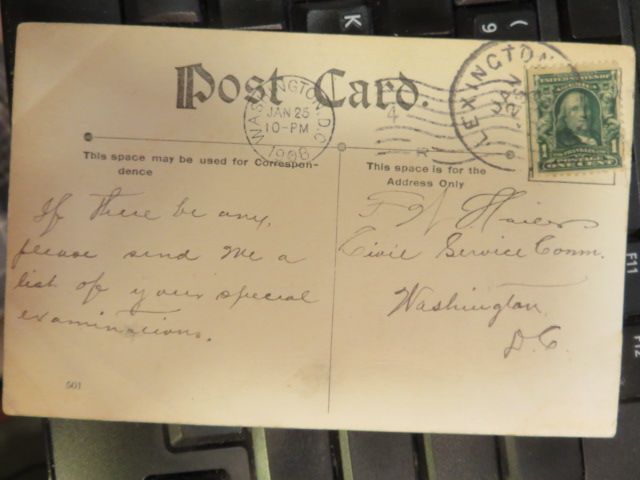 Post Card.
WASHINGTON, D.C.
JAN 25
10-PM
1908
4
R
LEXINGTON
JAN
UNITED STATES OF AMERICA
1 1
ONE CENT
This space may be used for Correspon-
dence
This space is for the
Address Only
If there be any,
please send me a
list of your special
examinations.
F W
Civil Service Comm.
Washington
D.C.
501
K
9
F11
F12